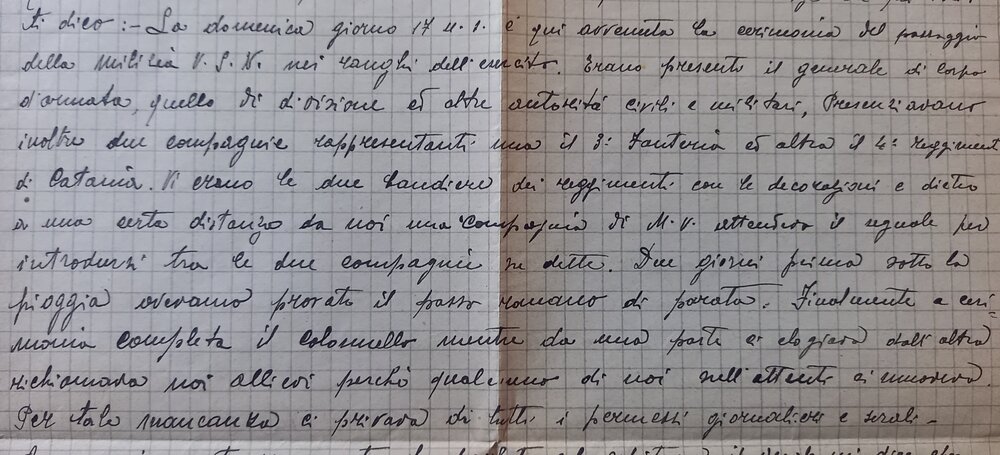 ti dico :- La domenica giorno 17 u.s. è qui avvenuta la cerimonia del passaggio
della milizia V. S. N. nei ranghi dell'esercito. Erano presenti il generale di Corpo
d'armata, quello di divisione ed altre autorità civili e militari, Presenziavano
inoltre due compagnie rappresentanti una il 3° Fanteria ed altra il 4° reggiment
di Catania. Vi erano le due bandiere dei reggimenti con le decorazioni e dietro
a una certa distanza da noi una Compagnia di M.V. attendeva il segnale per
introdursi tra le due compagnie su dette. Due giorni prima sotto la
pioggia avevamo provato il passo romano di parata. Finalmente a ceri=
monia completa il Colonnello mentre da una parte ci elogiava dall'altra
richiamava noi allievi perchè qualcuno di noi nell'attenti si muoveva.
Per tale mancanza ci privava di tutti i permessi giornalieri e serali -